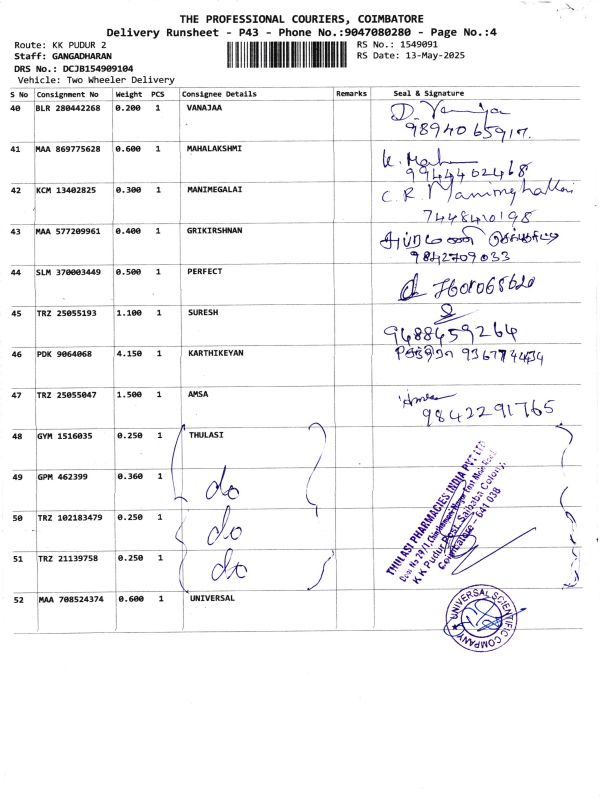 THE PROFESSIONAL COURIERS, COIMBATORE
Delivery Runsheet - P43 - Phone No.:9047080280 - Page No.:4
Route: KK PUDUR 2 RS No.: 1549091
Staff: GANGADHARAN RS Date: 13-May-2025
DRS No.: DCJB154909104
Vehicle: Two Wheeler Delivery
S No Consignment No Weight PCS Consignee Details Remarks Seal & Signature
40 BLR 280442268 0.200 1 VANAJAA
9894065917.
41 MAA 869775628 0.600 1 MAHALAKSHMI
9944402468
42 KCM 13402825 0.300 1 MANIMEGALAI C. R.
7448410198
43 MAA 577209961 0.400 1 GRIKIRSHNAN
9842709033
44 SLM 370003449 0.500 1 PERFECT
45 TRZ 25055193 1.100 1 SURESH
9488459264
46 PDK 9064068 4.150 1 KARTHIKEYAN
47 TRZ 25055047 1.500 1 AMSA
9842291765
48 GYM 1516035 0.250 1 THULASI
49 GPM 462399 0.360 1 do
50 TRZ 102183479 0.250 1 do
51 TRZ 21139758 0.250 1 do
THULASI PHARMACIES INDIA PVT LTD
K K Pudur Post, Saibaba Colony,
Coimbatore - 641 038
52 MAA 708524374 0.600 1 UNIVERSAL
UNIVERSAL SCIENTIFIC COMPANY